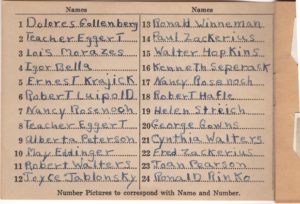 Names
1 Dolores Gollenberg
2 Teacher Eggert
3 Lois Morazes
4 Igor Bella
5 Ernest Krajick
6 Robert Luipold
7 Nancy Rosenoch
8 Teacher Eggert
9 Alberta Paterson
10 May Eddinger
11 Robert Walters
12 Joyce Jablonsky
Names
13 Ronald Winneman
14 Paul Zackerius
15 Walter Hopkins
16 Kenneth Seperack
17 Nancy Rosenoch
18 Robert Hafle
19 Helen Streich
20 George Gowns
21 Cynthia Walters
22 Fred Zackerius
23 Joan Pearson
24 Ronald Rinko
Number Pictures to correspond with Name and Number.